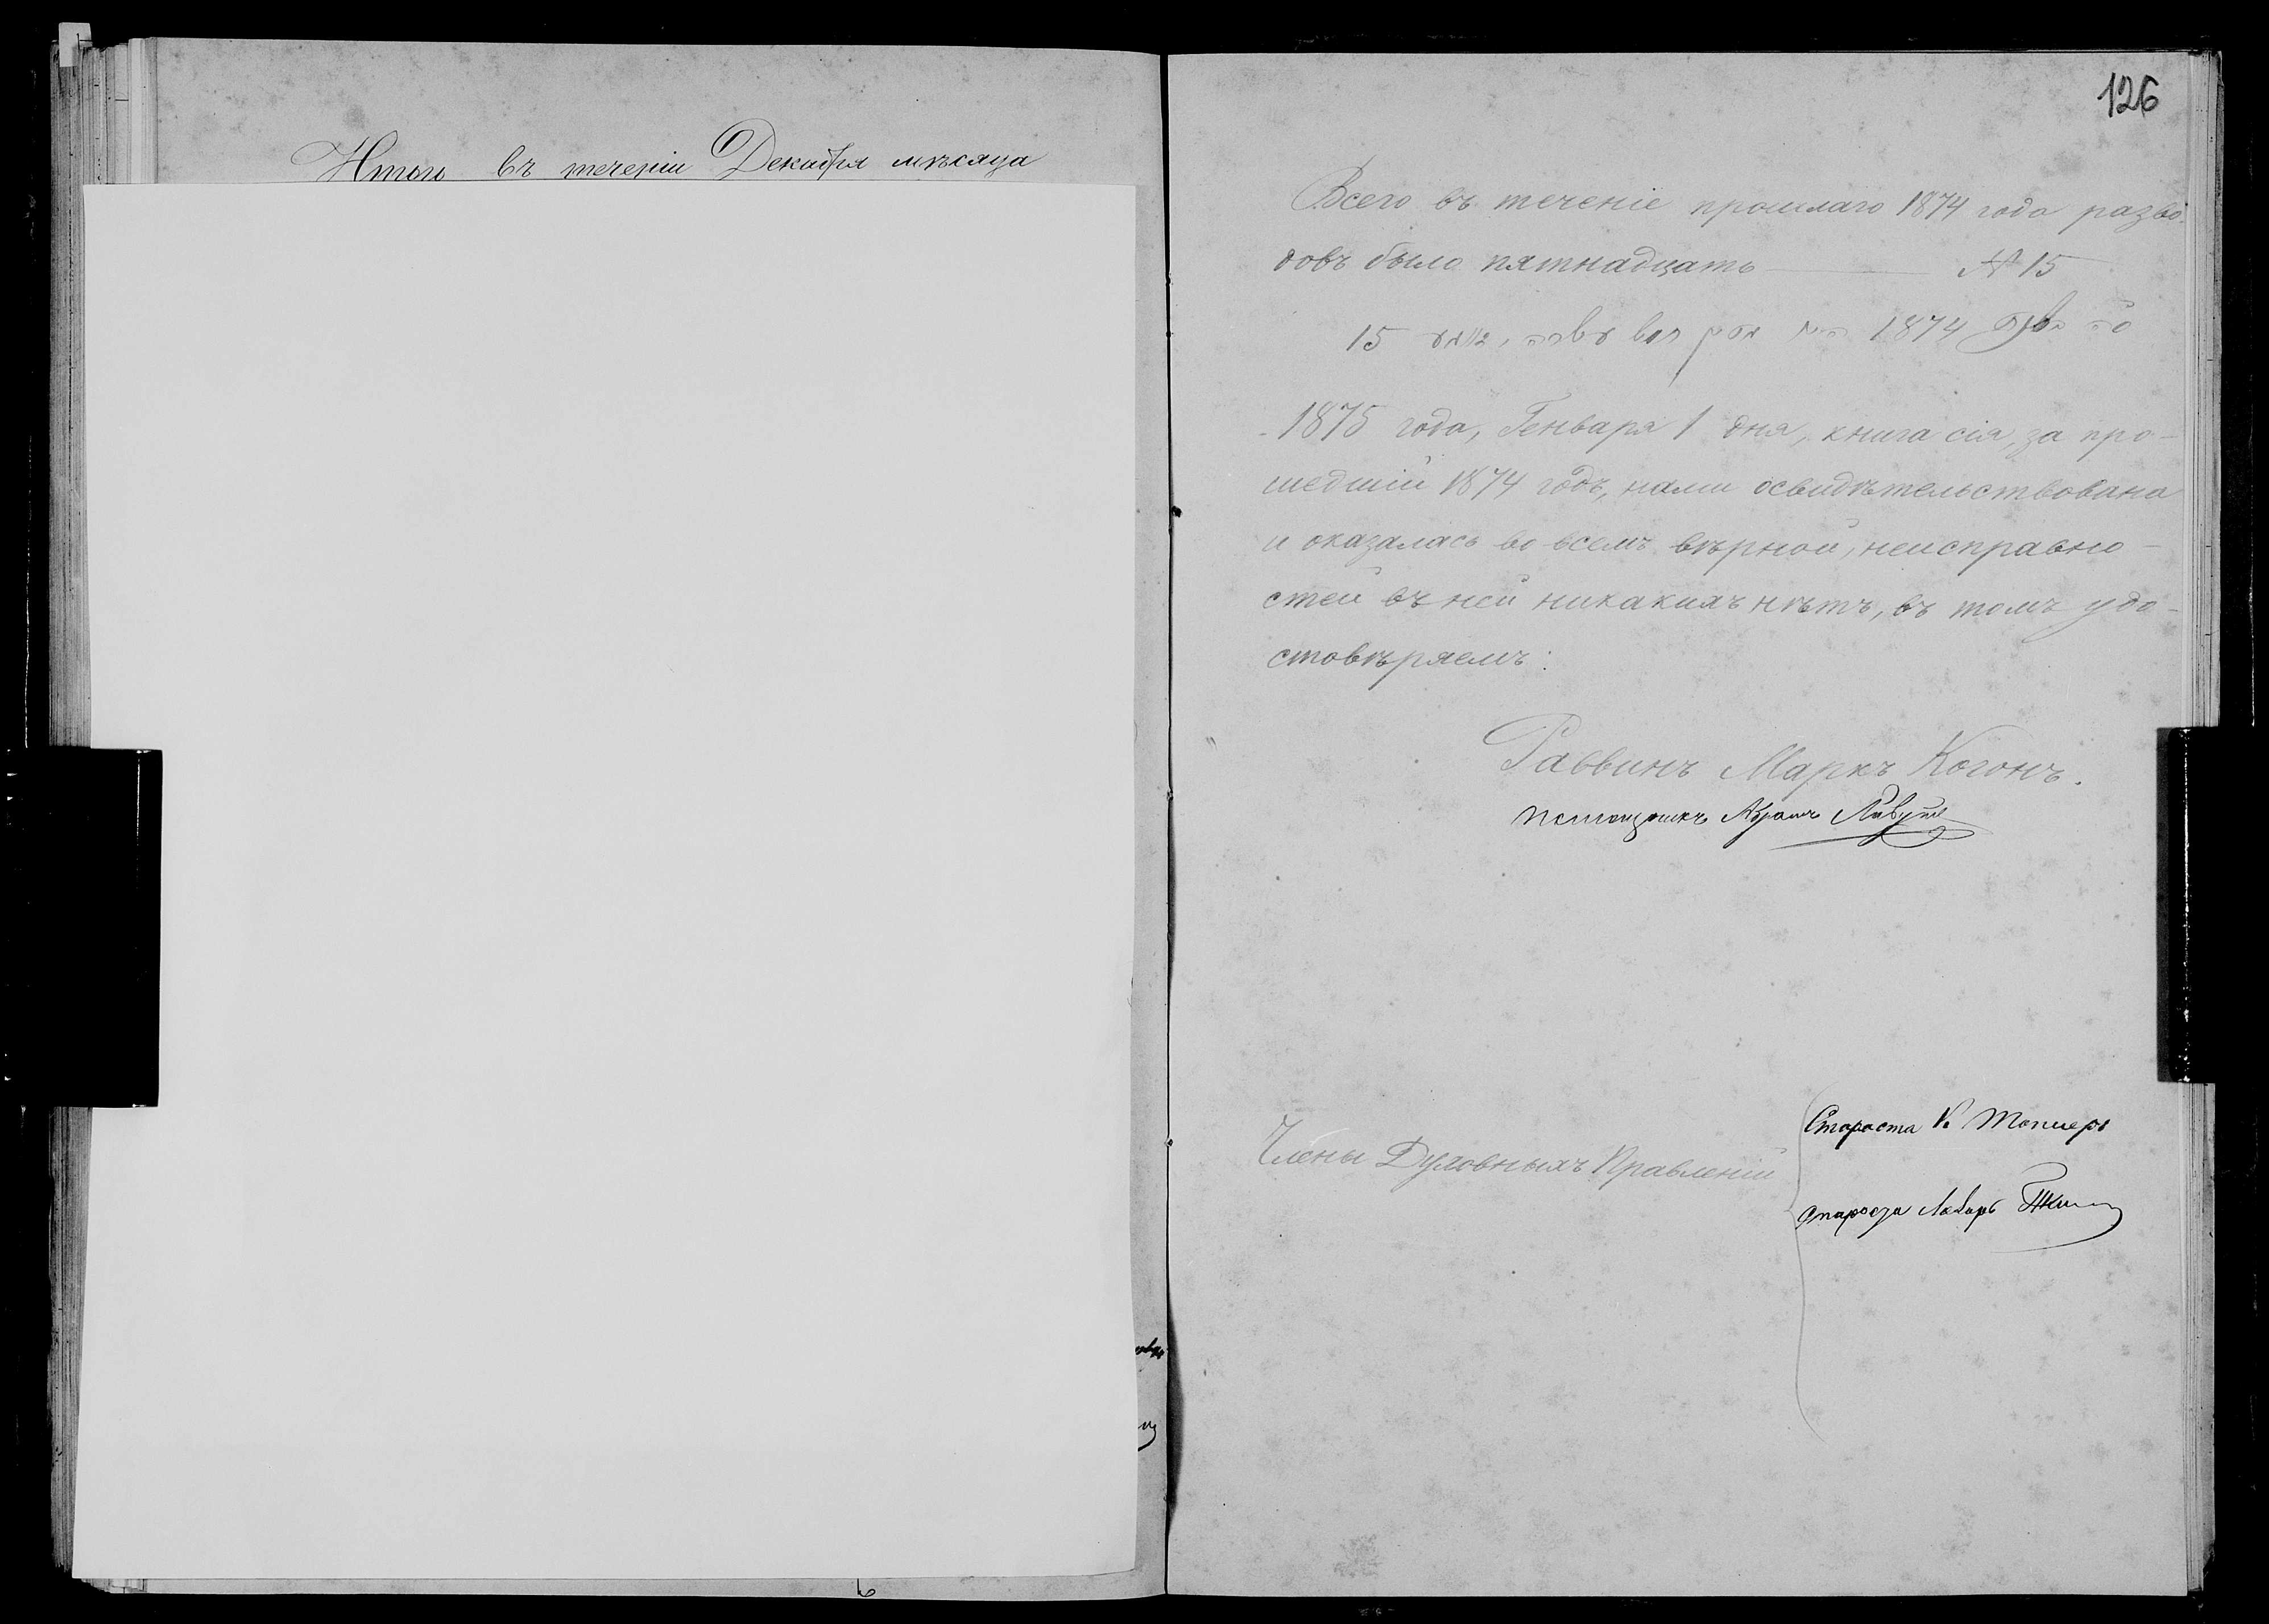 Итого въ теченіи Декабря мѣсяца
126
Всего въ теченіе прошлаго 1874 года разво-
довъ было пятнадцать № 15
1874 15
1875 года, Генваря 1 дня, книга сія, за про-
шедшій 1874 годъ, нами освидѣтельствована
и оказалась во всемъ вѣрной, неисправно-
стей въ ней никакихъ нѣтъ, въ томъ удо-
стовѣряемъ:
Раввинъ Маркъ Когонъ.
помощникъ Абрамъ
Члены Духовныхъ Правленій
Староста
Староста